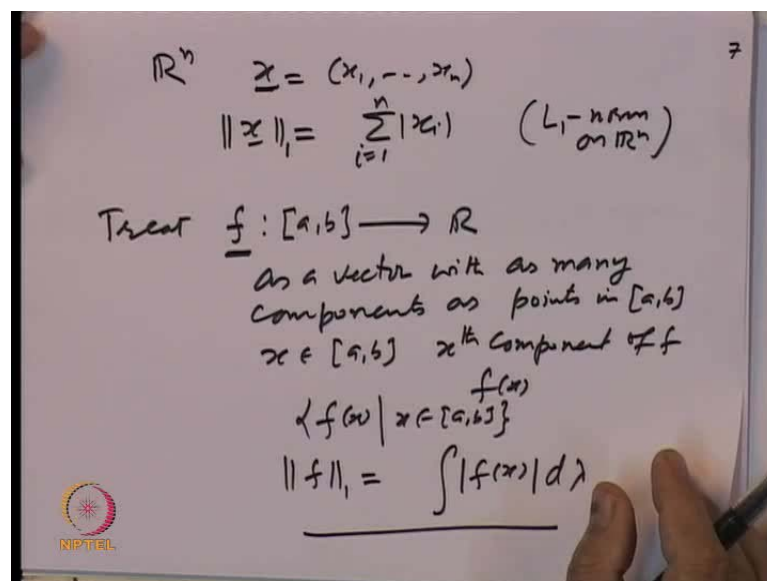 7
ℝⁿ x = (x₁, --, xₙ)
‖x‖₁ = Σᵢ₌₁ⁿ |xᵢ| (L₁-norm
on ℝⁿ)
Treat f : [a,b] ⟶ ℝ
as a vector with as many
components as points in [a,b]
x ∈ [a,b] xth component of f
f(x)
{f(x) | x ∈ [a,b]}
‖f‖₁ = ∫|f(x)| dλ
NPTEL